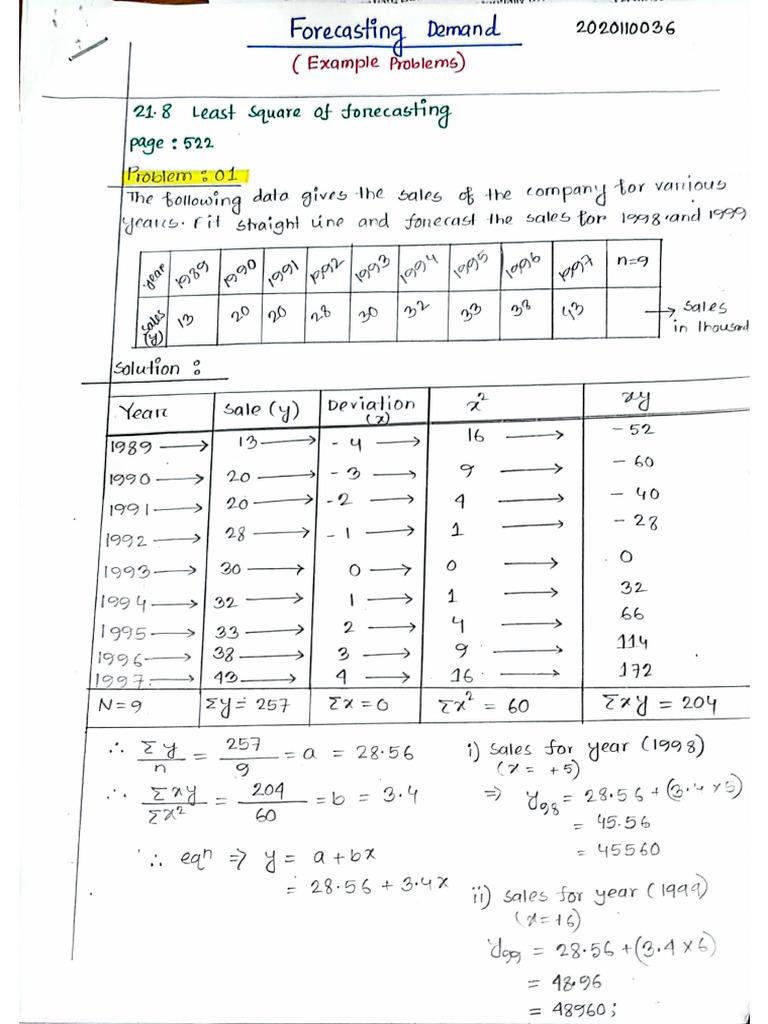 Forecasting Demand
2020110036
(Example Problems)
21.8 Least Square of forecasting
page : 522
Problem : 01
The following data gives the sales of the company for various
years. Fit straight line and forecast the sales for 1998 and 1999
year 1989 1990 1991 1992 1993 1994 1995 1996 1997 n=9
sales (y) 13 20 20 28 30 32 33 38 43 → sales in thousand
Solution :
Year Sale (y) Deviation (x) x² xy
1989 → 13 → -4 → 16 → -52
1990 → 20 → -3 → 9 → -60
1991 → 20 → -2 → 4 → -40
1992 → 28 → -1 → 1 → -28
1993 → 30 → 0 → 0 → 0
1994 → 32 → 1 → 1 → 32
1995 → 33 → 2 → 4 → 66
1996 → 38 → 3 → 9 → 114
1997 → 43 → 4 → 16 → 172
N=9 Σy= 257 Σx=0 Σx² = 60 Σxy = 204
∴ Σy/n = 257/9 = a = 28.56
∴ Σxy/Σx² = 204/60 = b = 3.4
∴ eqn ⇒ y = a+bx
= 28.56 + 3.4x
i) sales for year (1998)
(x = +5)
⇒ y98 = 28.56 + (3.4×5)
= 45.56
= 45560
ii) sales for year (1999)
(x=+6)
y99 = 28.56 + (3.4×6)
= 48.96
= 48960;